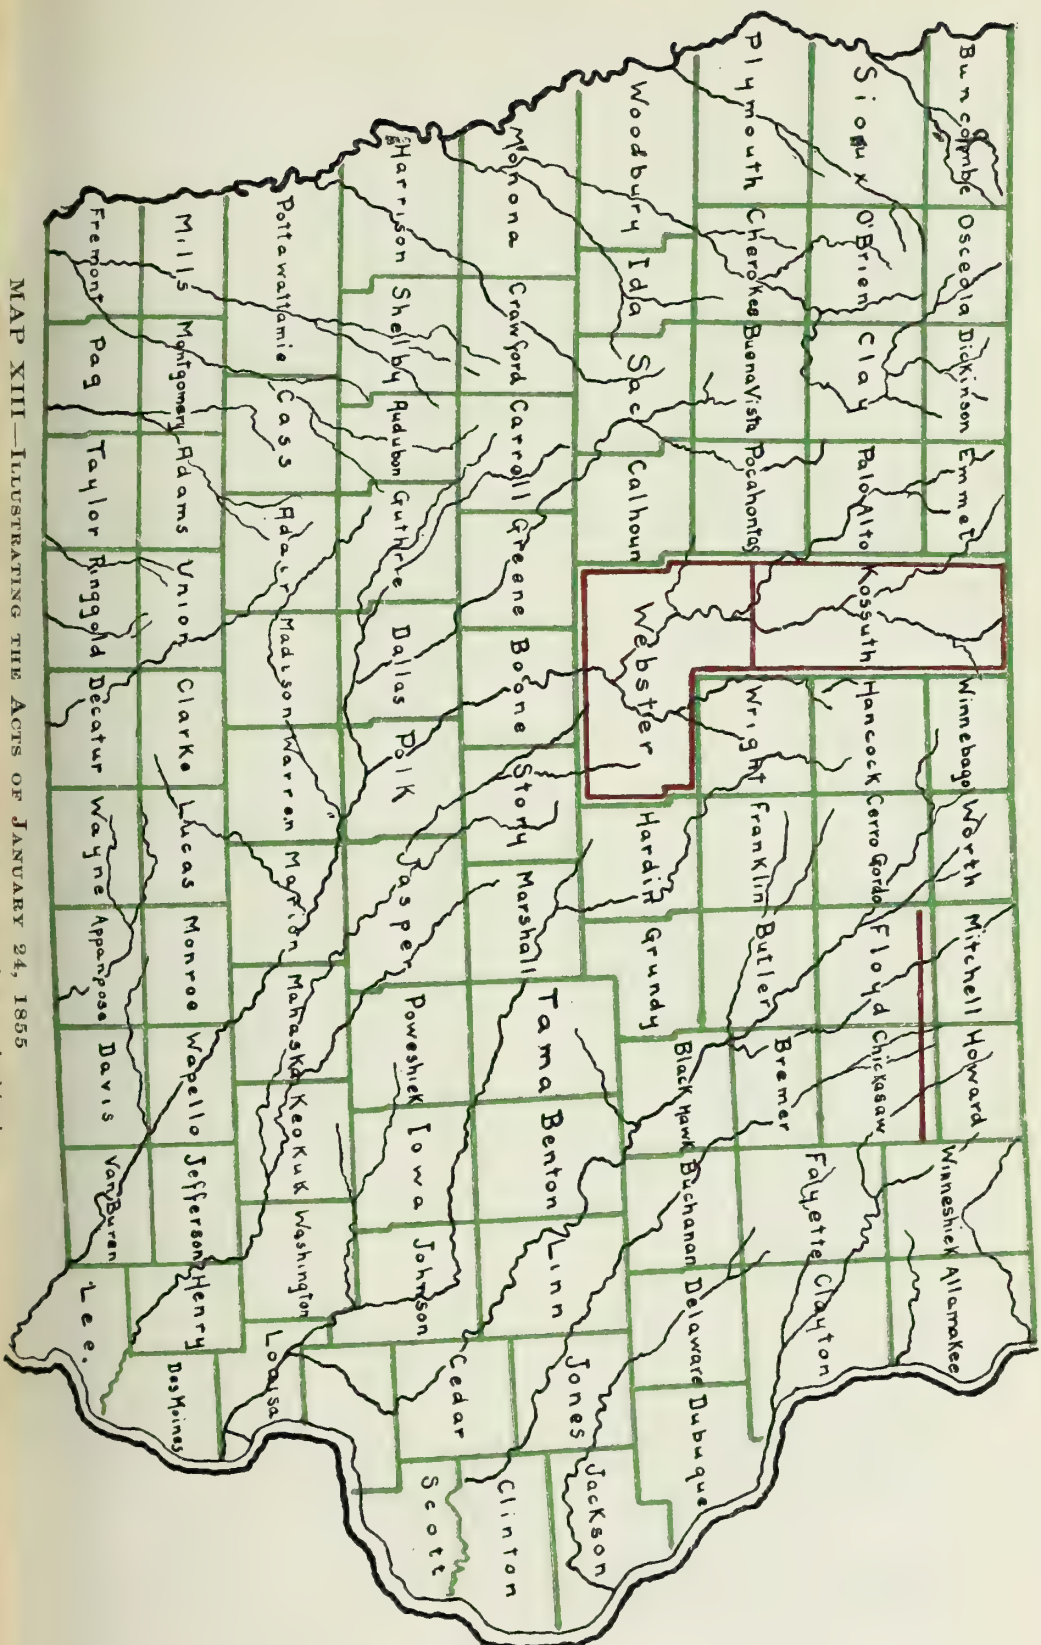 Buncombe
Osceola
Dickinson
Emmet
Winnebago
Worth
Mitchell
Howard
Winneshiek
Allamakee
Sioux
O'Brien
Clay
Palo Alto
Kossuth
Hancock
Cerro Gordo
Floyd
Chickasaw
Fayette
Clayton
Plymouth
Cherokee
Buena Vista
Pocahontas
Wright
Franklin
Butler
Bremer
Woodbury
Ida
Sac
Calhoun
Webster
Hardin
Grundy
Black Hawk
Buchanan
Delaware
Dubuque
Monona
Crawford
Carroll
Greene
Boone
Story
Marshall
Tama
Benton
Linn
Jones
Jackson
Harrison
Shelby
Audubon
Guthrie
Dallas
Polk
Jasper
Poweshiek
Iowa
Johnson
Cedar
Clinton
Scott
Pottawattamie
Cass
Adair
Madison
Warren
Marion
Mahaska
Keokuk
Washington
Louisa
Mills
Montgomery
Adams
Union
Clarke
Lucas
Monroe
Wapello
Jefferson
Henry
Des Moines
Fremont
Pag
Taylor
Ringgold
Decatur
Wayne
Appanoose
Davis
Van Buren
Lee.
MAP XIII—ILLUSTRATING THE ACTS OF JANUARY 24, 1855